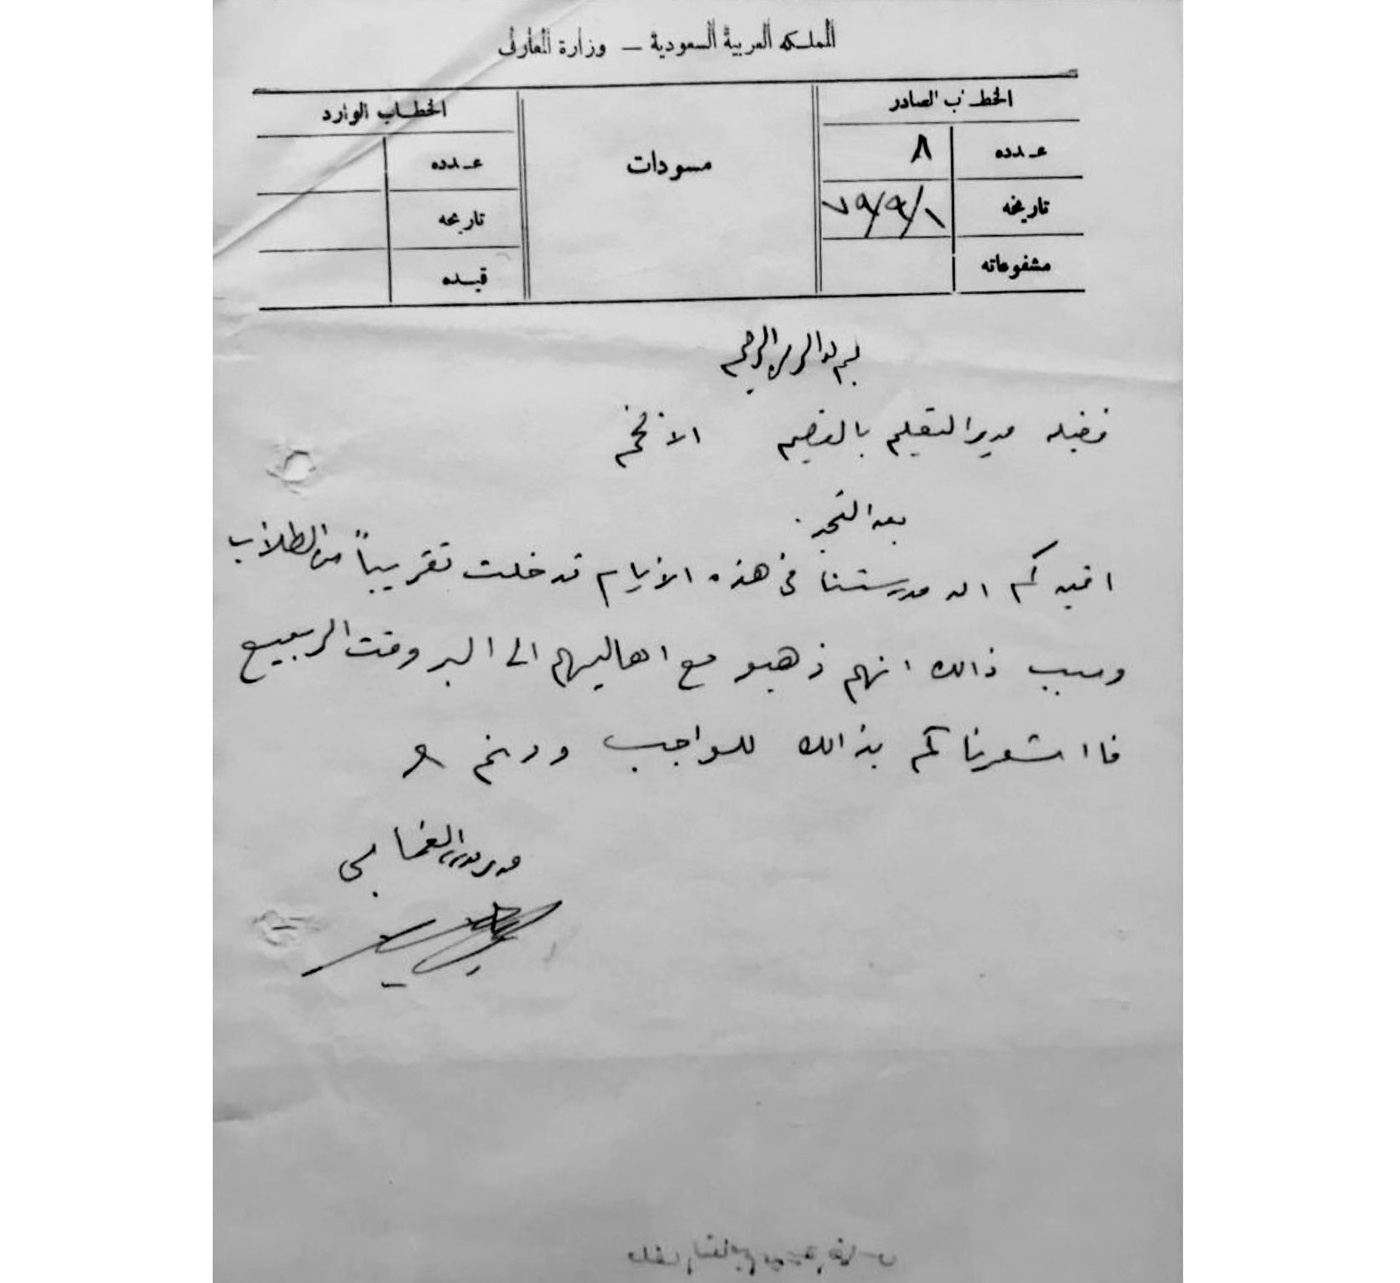 المملكة العربية السعودية — وزارة المعارف
الخطاب الصادر
عدده ٨
تاريخه ٧٩/٩/١
مشفوعاته
مسودات
الخطاب الوارد
عدده
تاريخه
قيده
بسم الله الرحمن الرحيم
فضيله مدير التعليم بالقصيم الافخم
بعد التحيه .
افيدكم ان مدرستنا في هذه الايام قد خلت تقريباً من الطلاب
وسبب ذالك انهم ذهبو مع اهاليهم الى البر وقت الربيع
فا اشعرناكم بذالك للواجب ودمتم
مدير مدرسة